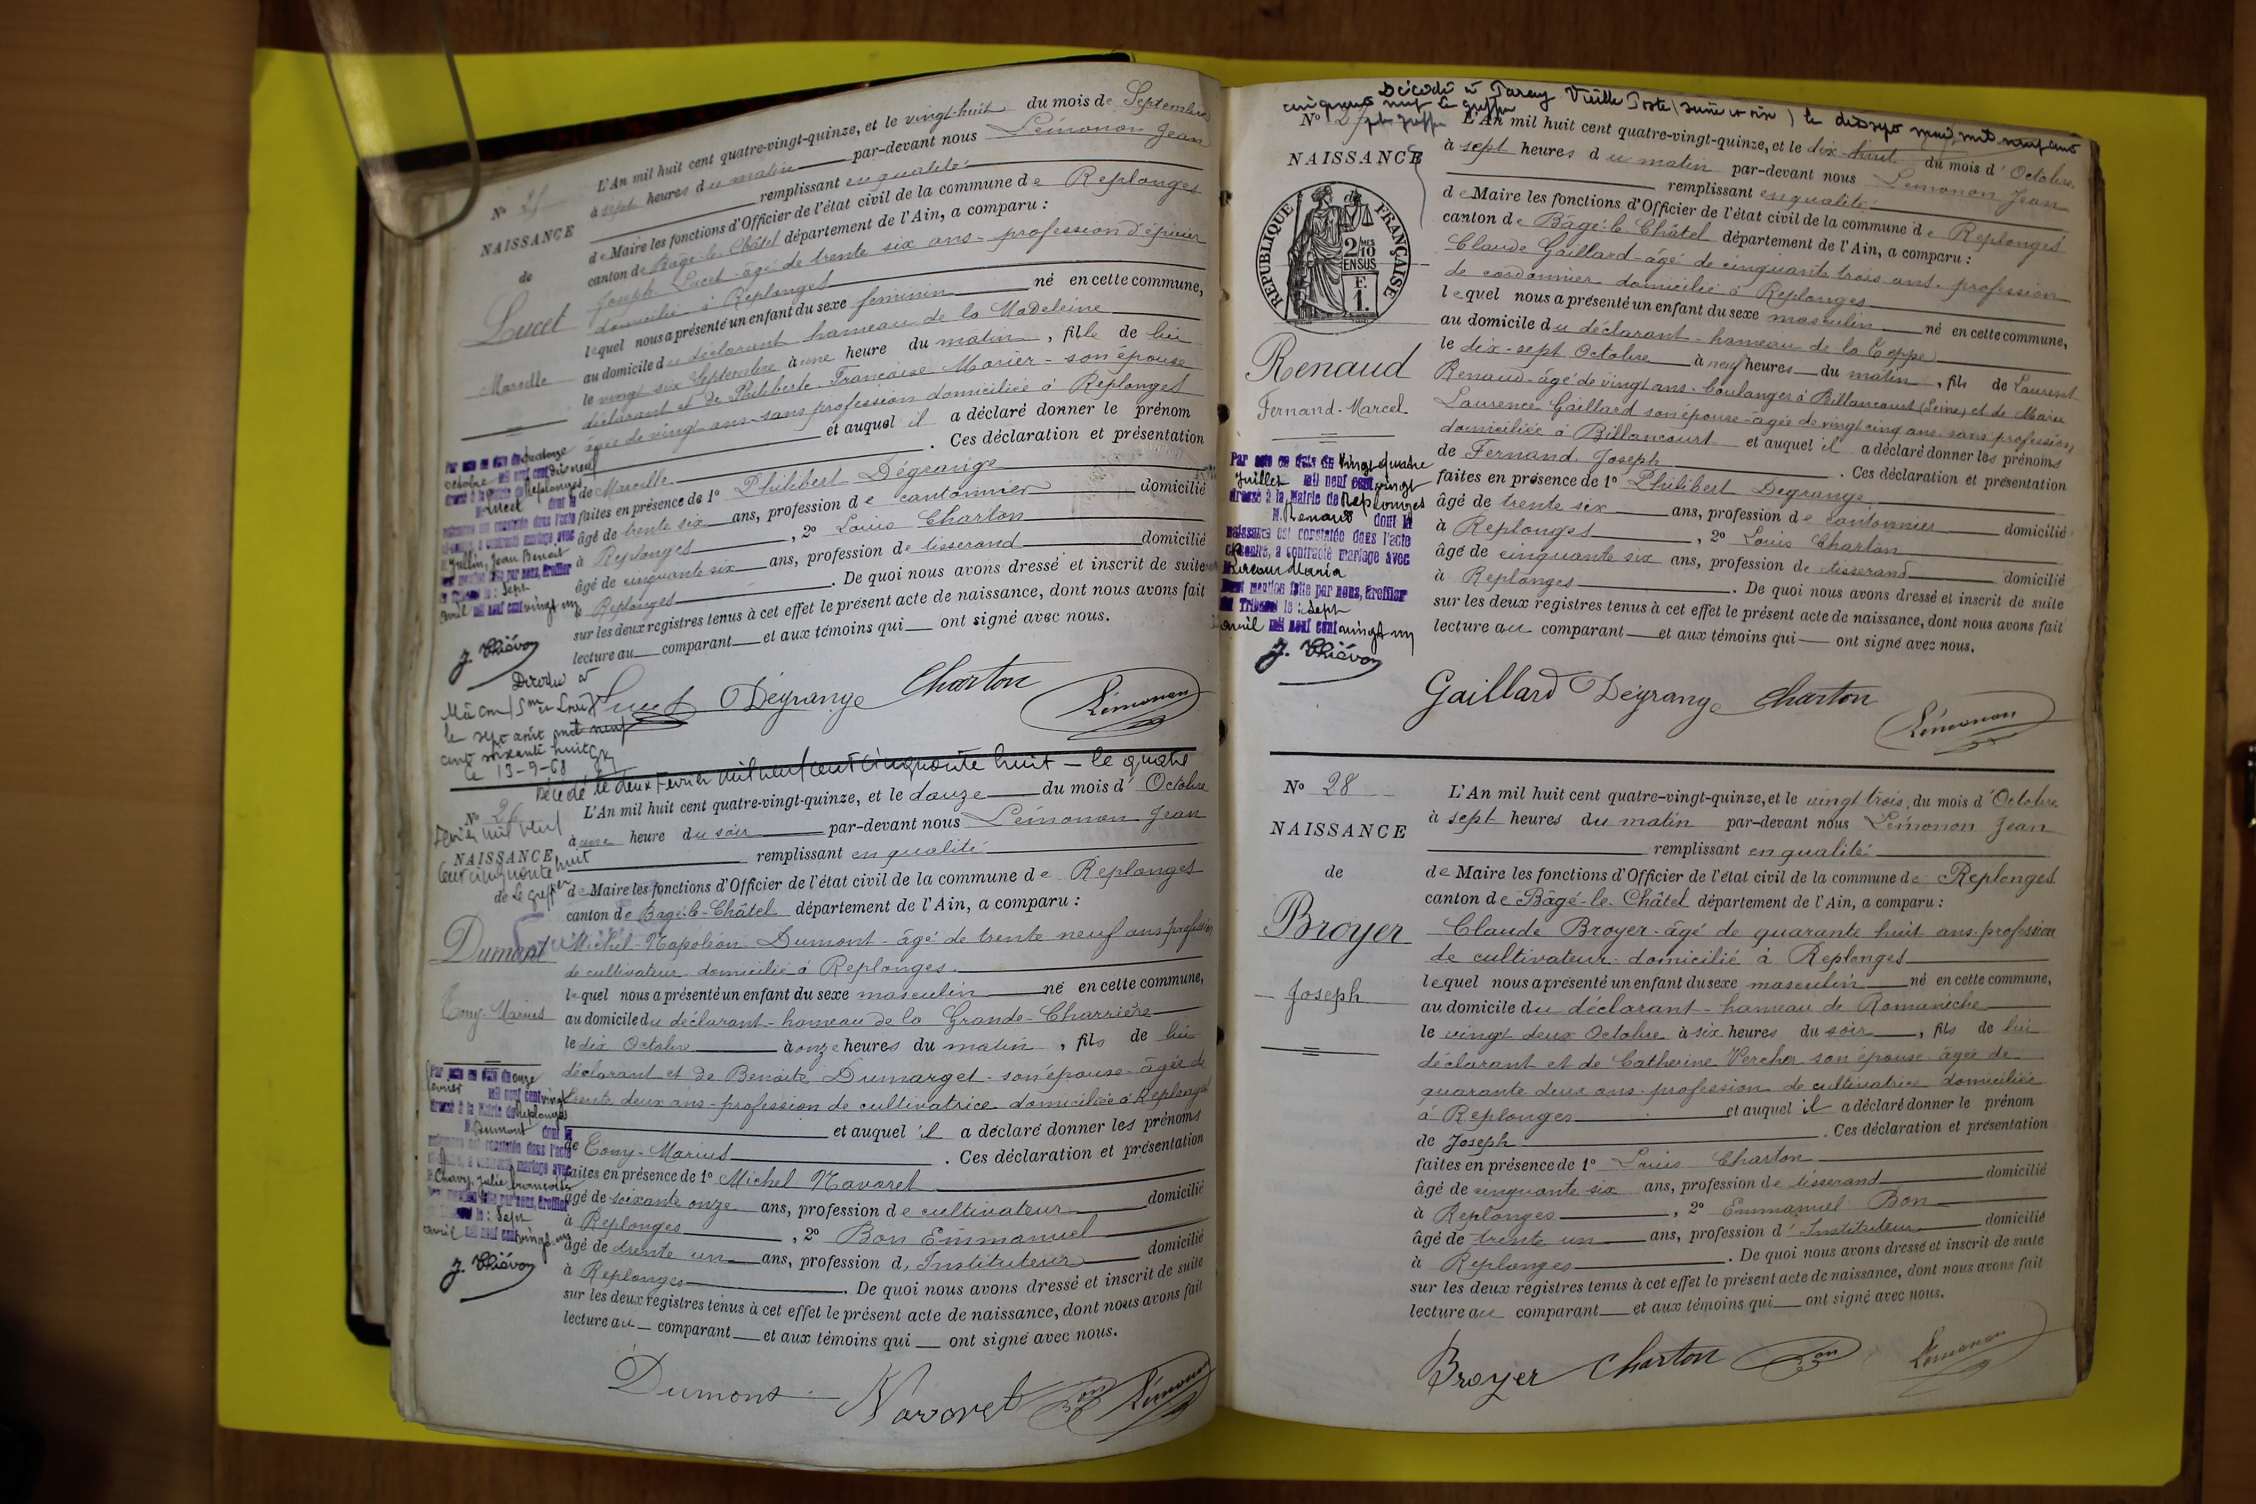 L'An mil huit cent quatre-vingt-quinze, et le vingt-huit du mois de Septembre
à sept heures du matin par-devant nous Lémonon Jean
remplissant en qualité
de Maire les fonctions d'Officier de l'état civil de la commune de Replonges
canton de Bâgé-le-Châtel département de l'Ain, a comparu :
Joseph Lucet âgé de trente six ans profession d'épicier
domicilié à Replonges
lequel nous a présenté un enfant du sexe féminin né en cette commune,
au domicile du déclarant hameau de la Madeleine
le vingt six Septembre à une heure du matin, fille de lui
déclarant et de Philiberte Françoise Morier son épouse
âgée de vingt ans sans profession domiciliée à Replonges
et auquel il a déclaré donner le prénom
de Marcelle . Ces déclaration et présentation
faites en présence de 1º Philibert Dégrange
âgé de trente six ans, profession de cantonnier domicilié
à Replonges , 2º Louis Charton
âgé de cinquante six ans, profession de tisserand domicilié
à Replonges . De quoi nous avons dressé et inscrit de suite
sur les deux registres tenus à cet effet le présent acte de naissance, dont nous avons fait
lecture au comparant et aux témoins qui ont signé avec nous.
Nº
NAISSANCE
de
Lucet
Marcelle
Par acte en date du quatorze
Octobre mil neuf cent dix neuf
dressé à la Mairie de Replonges
Lucet dont la
naissance est constatée dans l'acte
ci-contre, a contracté mariage avec
Jullin, Jean Benoit
mention faite par nous, Greffier
le : Sept
avril mil neuf cent vingt un
J. Thiévon
Décédé à
Mâcon
le sept août mil neuf
cent soixante huit
le 13-9-68
Lucet Dégrange Charton Lémonon
Décédé le deux Février mil neuf cent cinquante huit – le quatre
Février mil neuf
cent cinquante huit
Le Greffier
Nº 26
NAISSANCE
de
Dumont
Tony-Marius
L'An mil huit cent quatre-vingt-quinze, et le douze du mois d'Octobre
à une heure du soir par-devant nous Lémonon Jean
remplissant en qualité
de Maire les fonctions d'Officier de l'état civil de la commune de Replonges
canton de Bâgé-le-Châtel département de l'Ain, a comparu :
Michel-Napoléon Dumont âgé de trente neuf ans profession
de cultivateur domicilié à Replonges
lequel nous a présenté un enfant du sexe masculin né en cette commune,
au domicile du déclarant - hameau de la Grande-Charrière
le dix Octobre à onze heures du matin , fils de lui
déclarant et de Benoite Dumarget son épouse âgée de
trente deux ans - profession de cultivatrice domiciliée à Replonges
et auquel il a déclaré donner les prénoms
de Tony-Marius . Ces déclaration et présentation
faites en présence de 1º Michel Navoret
âgé de soixante onze ans, profession de cultivateur domicilié
à Replonges , 2º Bon Emmanuel
âgé de trente un ans, profession d'Instituteur domicilié
à Replonges . De quoi nous avons dressé et inscrit de suite
sur les deux registres tenus à cet effet le présent acte de naissance, dont nous avons fait
lecture au comparant et aux témoins qui ont signé avec nous.
Par acte en date du onze
février mil neuf cent vingt
dressé à la Mairie de Replonges
Dumont dont la
naissance est constatée dans l'acte
ci-contre, a contracté mariage avec
Chavy, Julie Françoise
mention faite par nous, Greffier
le : Sept
avril mil neuf cent vingt un
J. Thiévon
Dumont Navoret Bon Lémonon
Décédé à Paray Vieille Poste (Seine et Oise) le
Nº 27
NAISSANCE
REPUBLIQUE FRANÇAISE
2/10 MES
EN SUS
1 F.
Renaud
Fernand-Marcel
L'An mil huit cent quatre-vingt-quinze, et le dix-huit du mois d'Octobre
à sept heures du matin par-devant nous Lémonon Jean
remplissant en qualité
de Maire les fonctions d'Officier de l'état civil de la commune de Replonges
canton de Bâgé-le-Châtel département de l'Ain, a comparu :
Claude Gaillard âgé de cinquante trois ans profession
de cordonnier domicilié à Replonges
lequel nous a présenté un enfant du sexe masculin né en cette commune,
au domicile du déclarant - hameau de la Teppe
le dix-sept Octobre à neuf heures du matin , fils de Laurent
Renaud âgé de vingt ans boulanger à Billancourt (Seine) et de Marie
Laurence Gaillard son épouse âgée de vingt cinq ans sans profession
domiciliée à Billancourt et auquel il a déclaré donner les prénoms
de Fernand Joseph . Ces déclaration et présentation
faites en présence de 1º Philibert Degrange
âgé de trente six ans, profession de cantonnier domicilié
à Replonges , 2º Louis Charton
âgé de cinquante six ans, profession de tisserand domicilié
à Replonges . De quoi nous avons dressé et inscrit de suite
sur les deux registres tenus à cet effet le présent acte de naissance, dont nous avons fait
lecture au comparant et aux témoins qui ont signé avec nous.
Par acte en date du vingt quatre
Juillet mil neuf cent vingt
dressé à la Mairie de Replonges
M. Renaud dont la
naissance est constatée dans l'acte
ci-contre, a contracté mariage avec
Maria
mention faite par nous, Greffier
du Tribunal le : Sept
avril mil neuf cent vingt un
J. Thiévon
Gaillard Dégrange Charton
Lémonon
Nº 28
NAISSANCE
de
Broyer
Joseph
L'An mil huit cent quatre-vingt-quinze, et le vingt trois du mois d'Octobre
à sept heures du matin par-devant nous Lémonon Jean
remplissant en qualité
de Maire les fonctions d'Officier de l'état civil de la commune de Replonges
canton de Bâgé-le-Châtel département de l'Ain, a comparu :
Claude Broyer âgé de quarante huit ans profession
de cultivateur domicilié à Replonges
lequel nous a présenté un enfant du sexe masculin né en cette commune,
au domicile du déclarant - hameau de Romanèche
le vingt deux Octobre à six heures du soir , fils de lui
déclarant et de Catherine Vercher son épouse âgée de
quarante deux ans profession de cultivatrice domiciliée
à Replonges et auquel il a déclaré donner le prénom
de Joseph . Ces déclaration et présentation
faites en présence de 1º Louis Charton
âgé de cinquante six ans, profession de tisserand domicilié
à Replonges , 2º Emmanuel Bon
âgé de trente un ans, profession d'Instituteur domicilié
à Replonges . De quoi nous avons dressé et inscrit de suite
sur les deux registres tenus à cet effet le présent acte de naissance, dont nous avons fait
lecture au comparant et aux témoins qui ont signé avec nous.
Broyer Charton Bon Lémonon